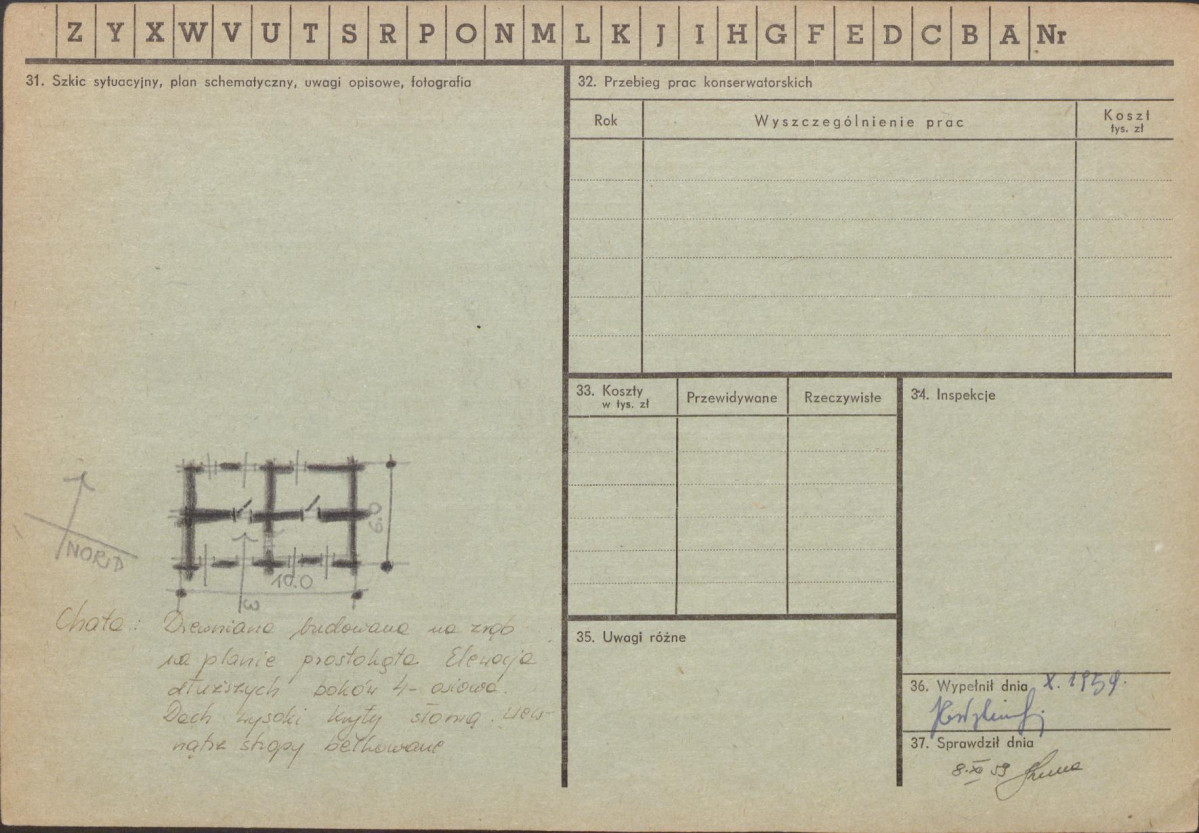 Z Y X W V U T S R P O N M L K J I H G F E D C B A Nr
31. Szkic sytuacyjny, plan schematyczny, uwagi opisowe, fotografia
NORD
6.0
10.0
3
Chata: Drewniana budowana na zrąb
na planie prostokąta Elewacja
dłuższych boków 4-osiowa.
Dach wysoki kryty słomą. Wew-
nątrz stropy belkowane
32. Przebieg prac konserwatorskich
Rok Wyszczególnienie prac Koszt
tys. zł
33. Koszty
w tys. zł
Przewidywane Rzeczywiste
34. Inspekcje
35. Uwagi różne
36. Wypełnił dnia X. 1959.
37. Sprawdził dnia
8.XI 59